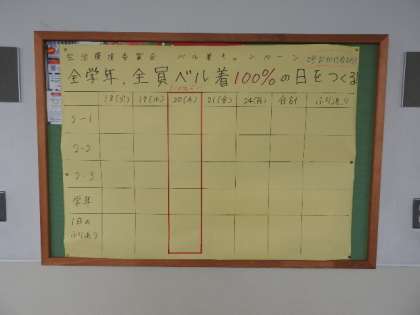 生活環境委員会 ベル着キャンペーン
全学年、全員ベル着100%の日をつくる
18(火) 19(水) 20(木) 21(金) 24(月) 合計 ふり返り
2-1
2-2
2-3
学年
1日の
ふり返り